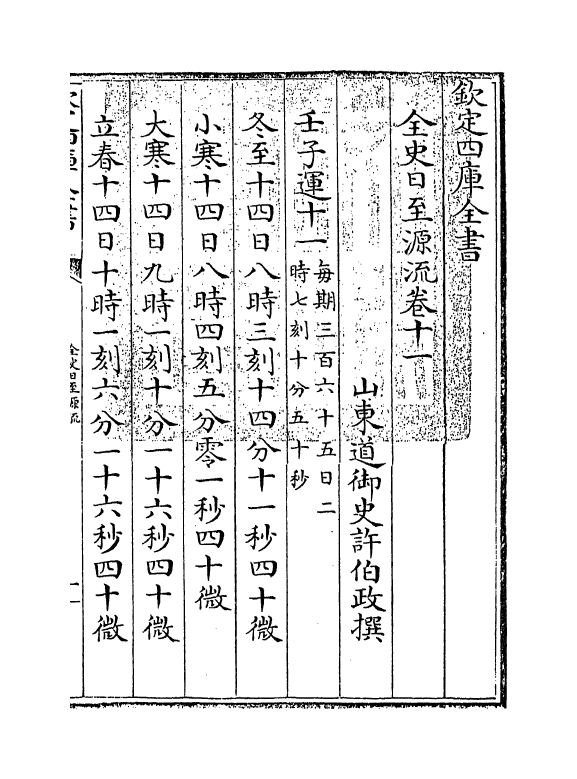 欽定四庫全書
全史日至源流卷十一
山東道御史許伯政撰
壬子運十一每期三百六十五日二
時七刻十分五十秒
冬至十四日八時三刻十四分十一秒四十微
小寒十四日八時四刻五分零一秒四十微
大寒十四日九時一刻十分一十六秒四十微
立春十四日十時一刻六分一十六秒四十微
全史日至源流
一